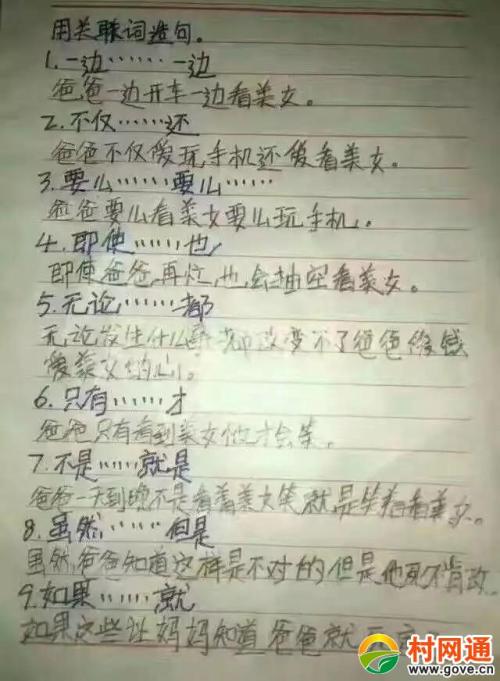 用关联词造句。
1.一边……一边
爸爸一边开车一边看美女。
2.不仅……还
爸爸不仅爱玩手机还爱看美女。
3.要么……要么……
爸爸要么看美女要么玩手机。
4.即使……也
即使爸爸再忙,也会抽空看美女。
5.无论……都
无论发生什么事都改变不了爸爸
爱美女的心。
6.只有……才
爸爸只有看到美女他才会笑。
7.不是……就是
爸爸一天到晚不是看着美女笑就是笑着看美女。
8.虽然……但是
虽然爸爸知道这样是不对的但是他死不肯改。
9.如果……就
如果这些让妈妈知道爸爸就
村网通
www.gove.cn